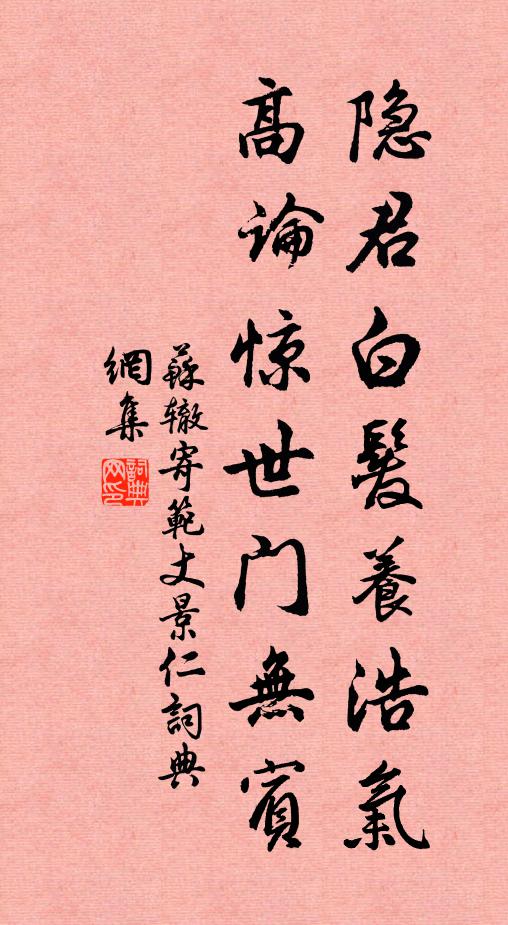 隐君白髮養浩氣
高论惊世门無賓
蘇辙寄範丈景仁詞典
網集
詞典網印